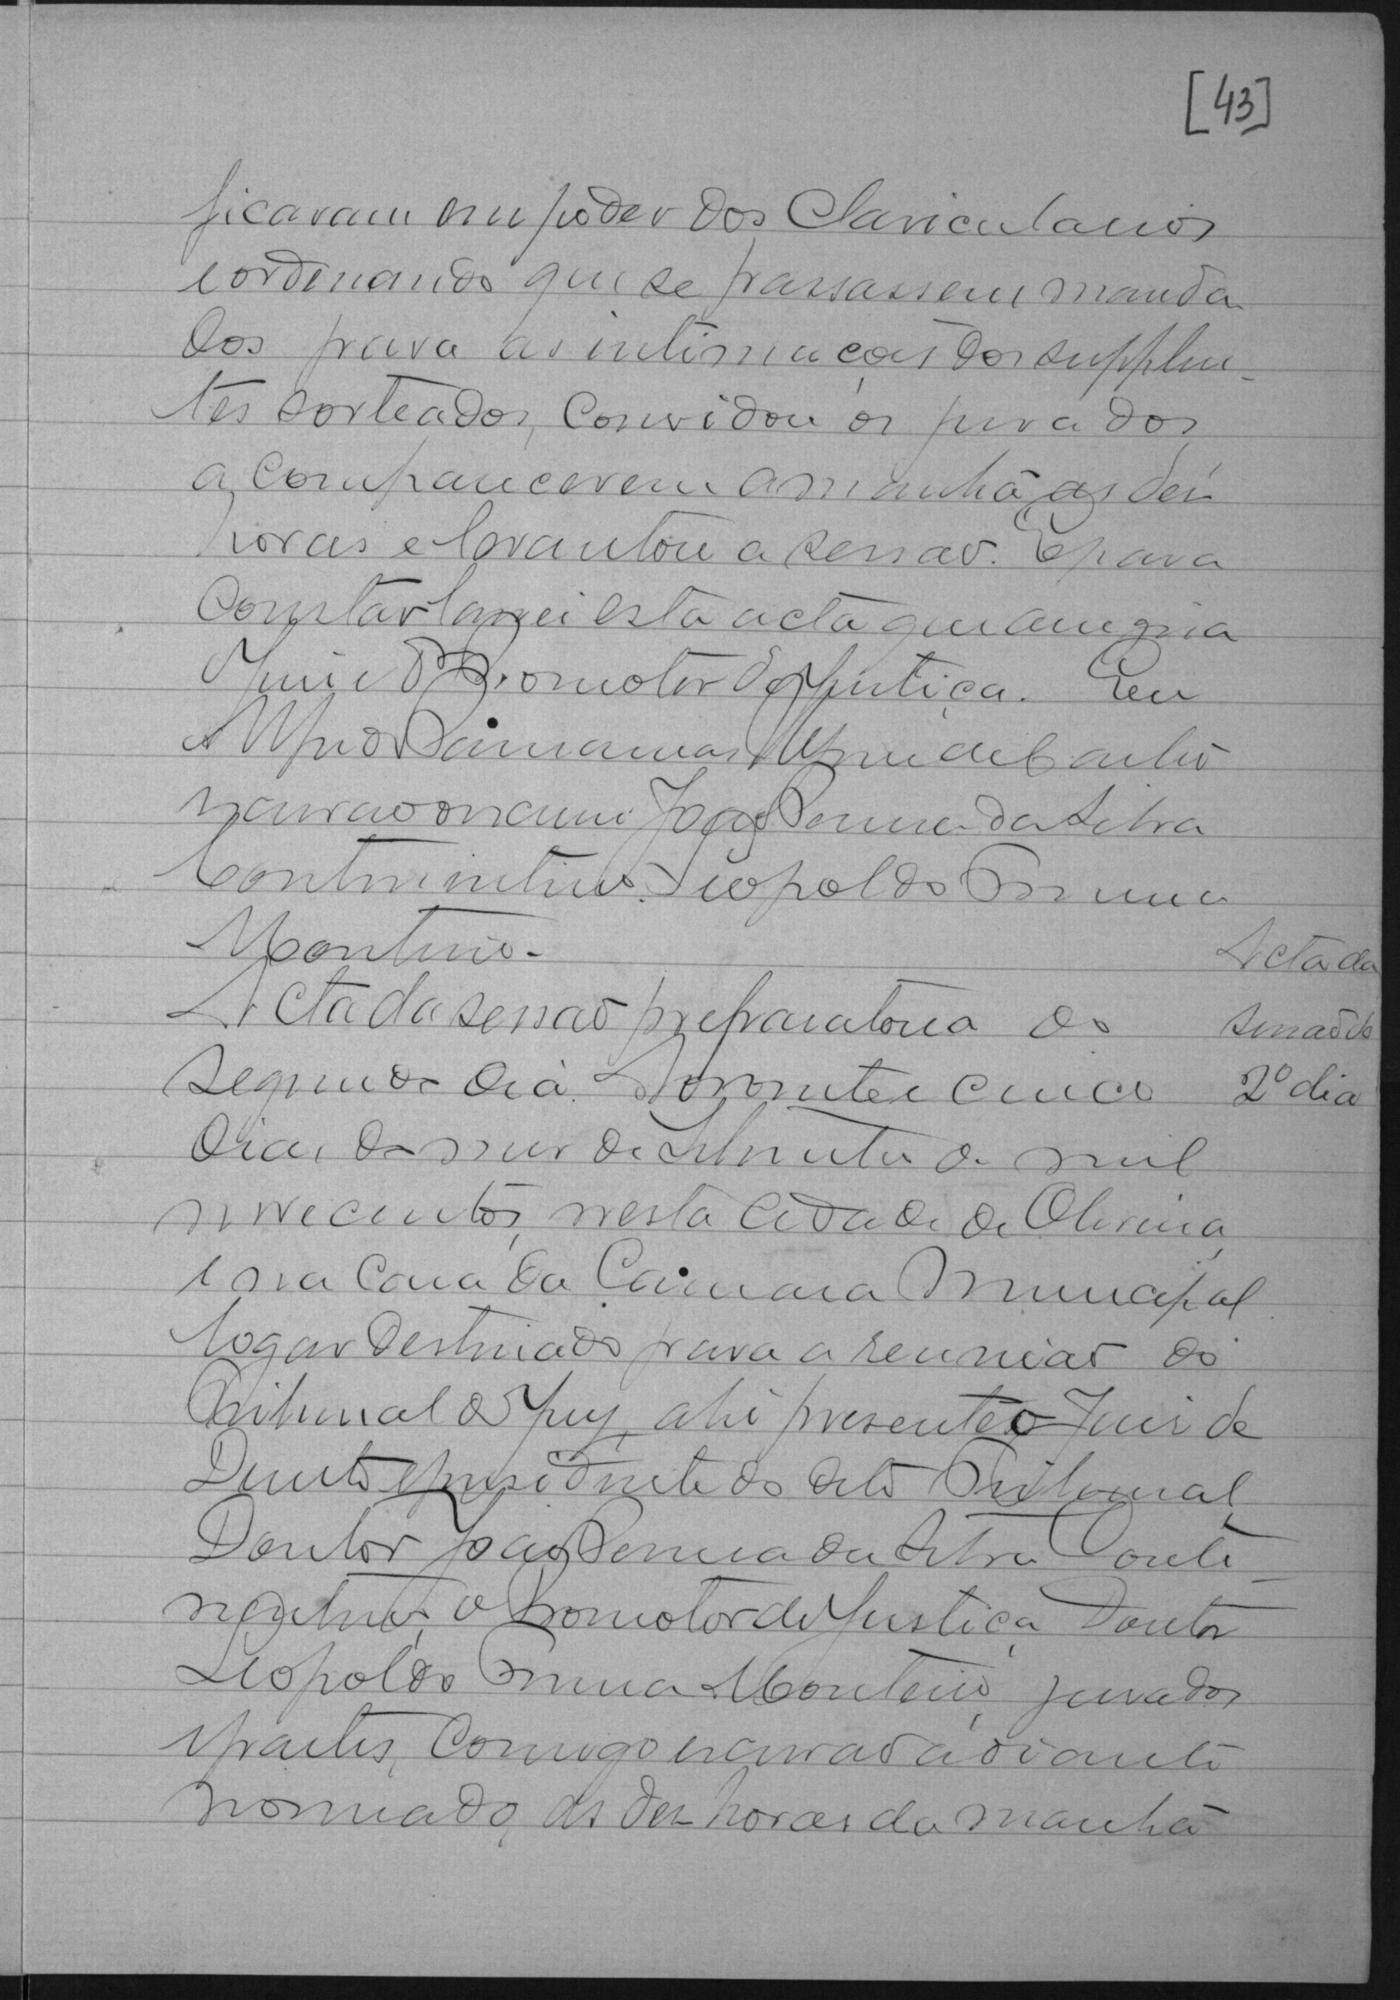 [43]
ficaram em poder dos Claviculários
e ordenando que se passassem manda
dos para as intimações dos supplen-
tes sorteados, Convidou os jurados
a comparecerem amanhã, as dez
horas e levantou a sessão. E para
Constar lavrei esta acta que assigna
o Juiz e o Promotor de Justiça. Eu
de Castro
escrivão o escrevi João Pereira da Silva
Continentino. Leopoldo
Monteiro.
Acta da sessão preparatoria do
segundo dia. Aos vinte e cinco
dias do mez de Setembro de mil
novecentos, nesta Cidade de Oliveira,
e na Casa da Camara Municipal
logar destinado para a reunião do
Tribunal do Jury, ahi presente o Juiz de
Direito e presidente do dito Tribunal,
Doutor João Pereira da Silva Conti-
nentino, o Promotor de Justiça Doutor
Leopoldo Monteiro, jurados
e partes, Comigo escrivão adiante
nomeado, as dez horas da manhã
Acta da
sessão do
2º dia